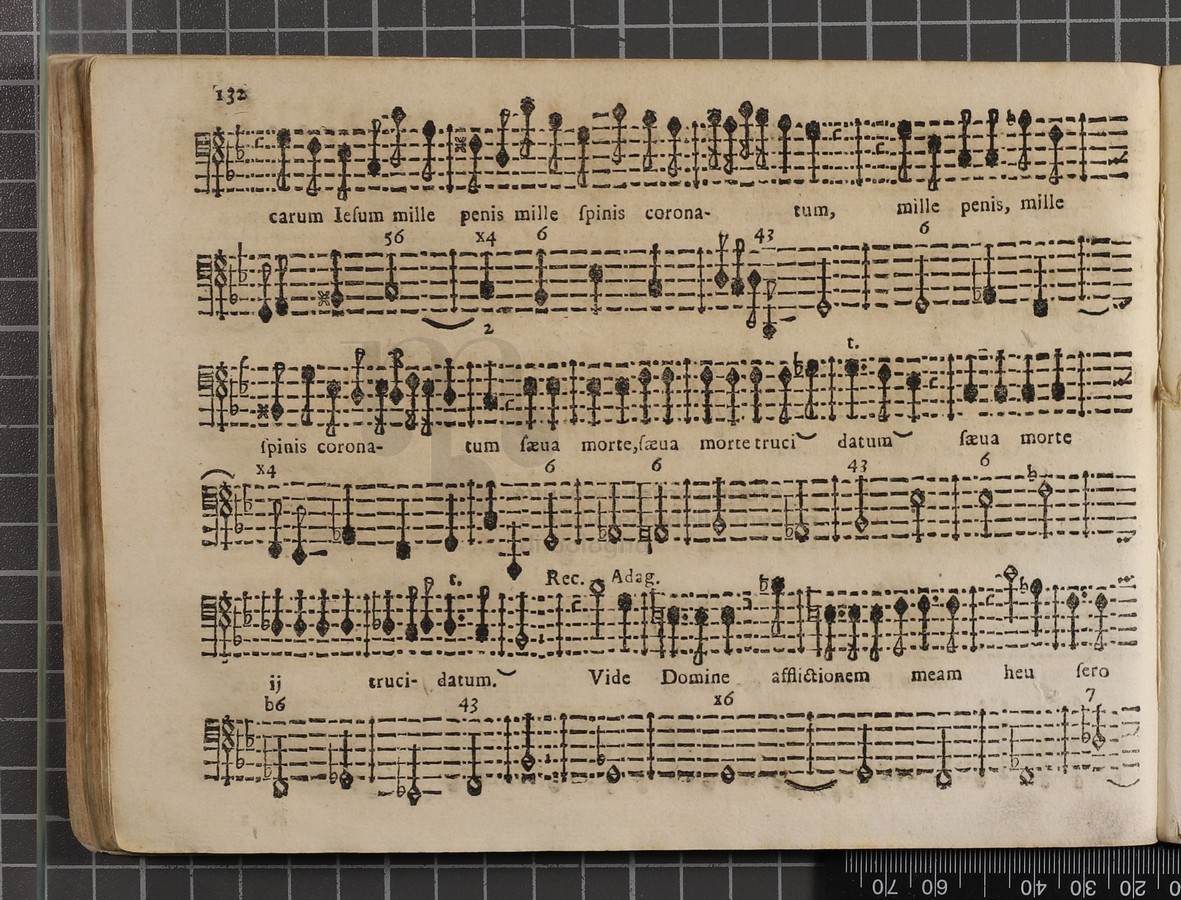 132
carum Ieſum mille penis mille ſpinis corona- tum, mille penis, mille
56 x4 6 43 6
2
t.
ſpinis corona- tum ſæua morte,ſæua morte truci datum ſæua morte
x4 6 6 43 6
t. Rec. Adag.
ij truci- datum. Vide Domine afflictionem meam heu ſero
b6 43 x6 7
70 60 40 30 20